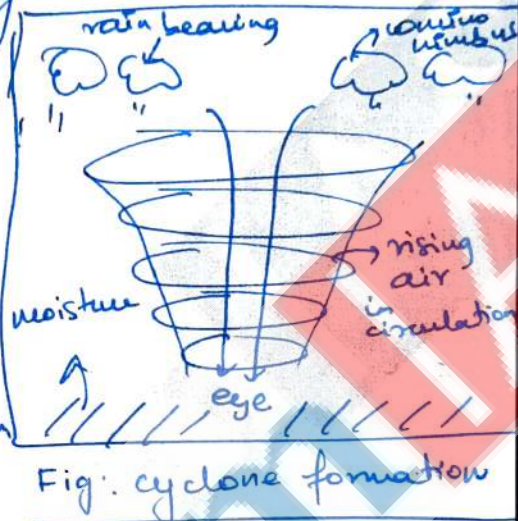 rain bearing
nimbus
rising
air
in
circulation
moisture
eye
Fig: cyclone formation